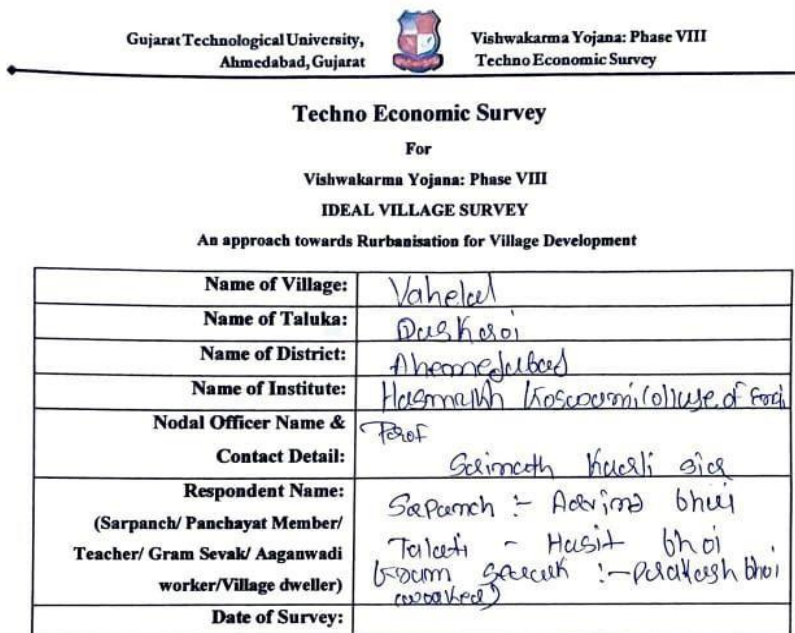 Gujarat Technological University,
Ahmedabad, Gujarat
Vishwakarma Yojana: Phase VIII
Techno Economic Survey
Techno Economic Survey
For
Vishwakarma Yojana: Phase VIII
IDEAL VILLAGE SURVEY
An approach towards Rurbanisation for Village Development
Name of Village: Vahelal
Name of Taluka: Daskroi
Name of District: Ahemedabad
Name of Institute: Hasmukh Goswami College of
Nodal Officer Name & Prof
Contact Detail: Sainath sir
Respondent Name: Sapanch :-
(Sarpanch/ Panchayat Member/
Teacher/ Gram Sevak/ Aaganwadi Talati - Hasit bhai
worker/Village dweller) Gram sevak :- Prakash bhai
(worker)
Date of Survey: